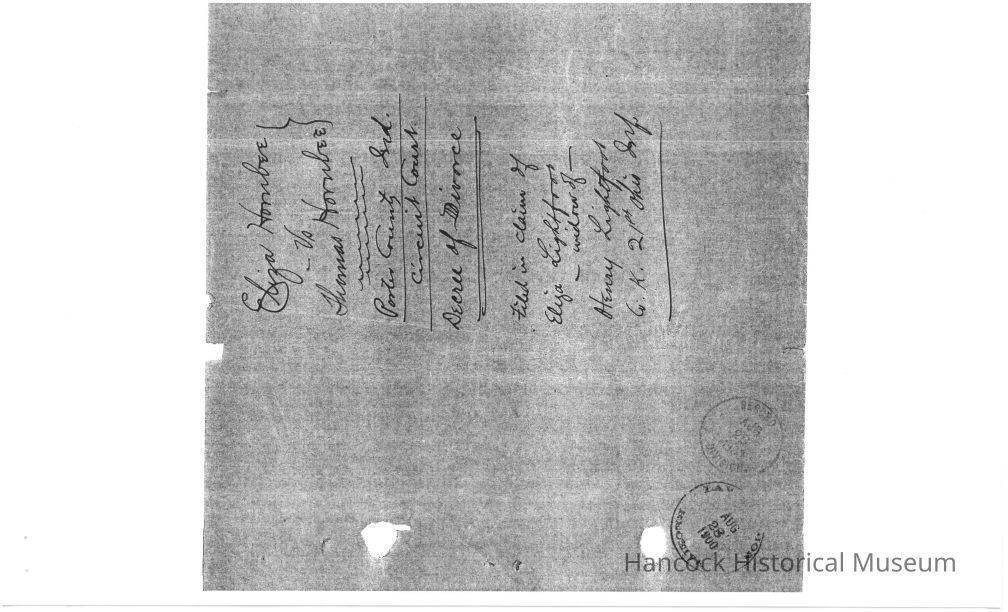 Eliza Hornbee
- Vs
Thomas Hornbee
Porter County Ind.
Circuit Court.
Decree of Divorce
Filed in claim of
Eliza Lightfoot
- widow of -
Henry Lightfoot
K. 21st Ohio Inf.
AUG
LAW
AUG
28
1900
Hancock Historical Museum